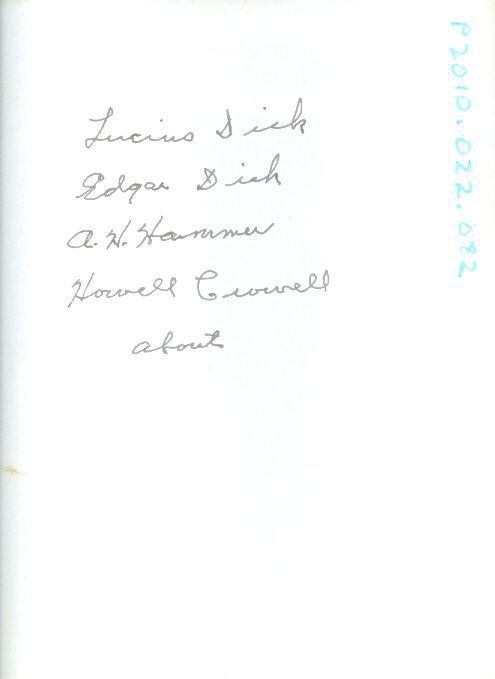 Lucius Dick
Edgar Dick
A. H. Hammer
Howell Crowell
about
P2010.022.082